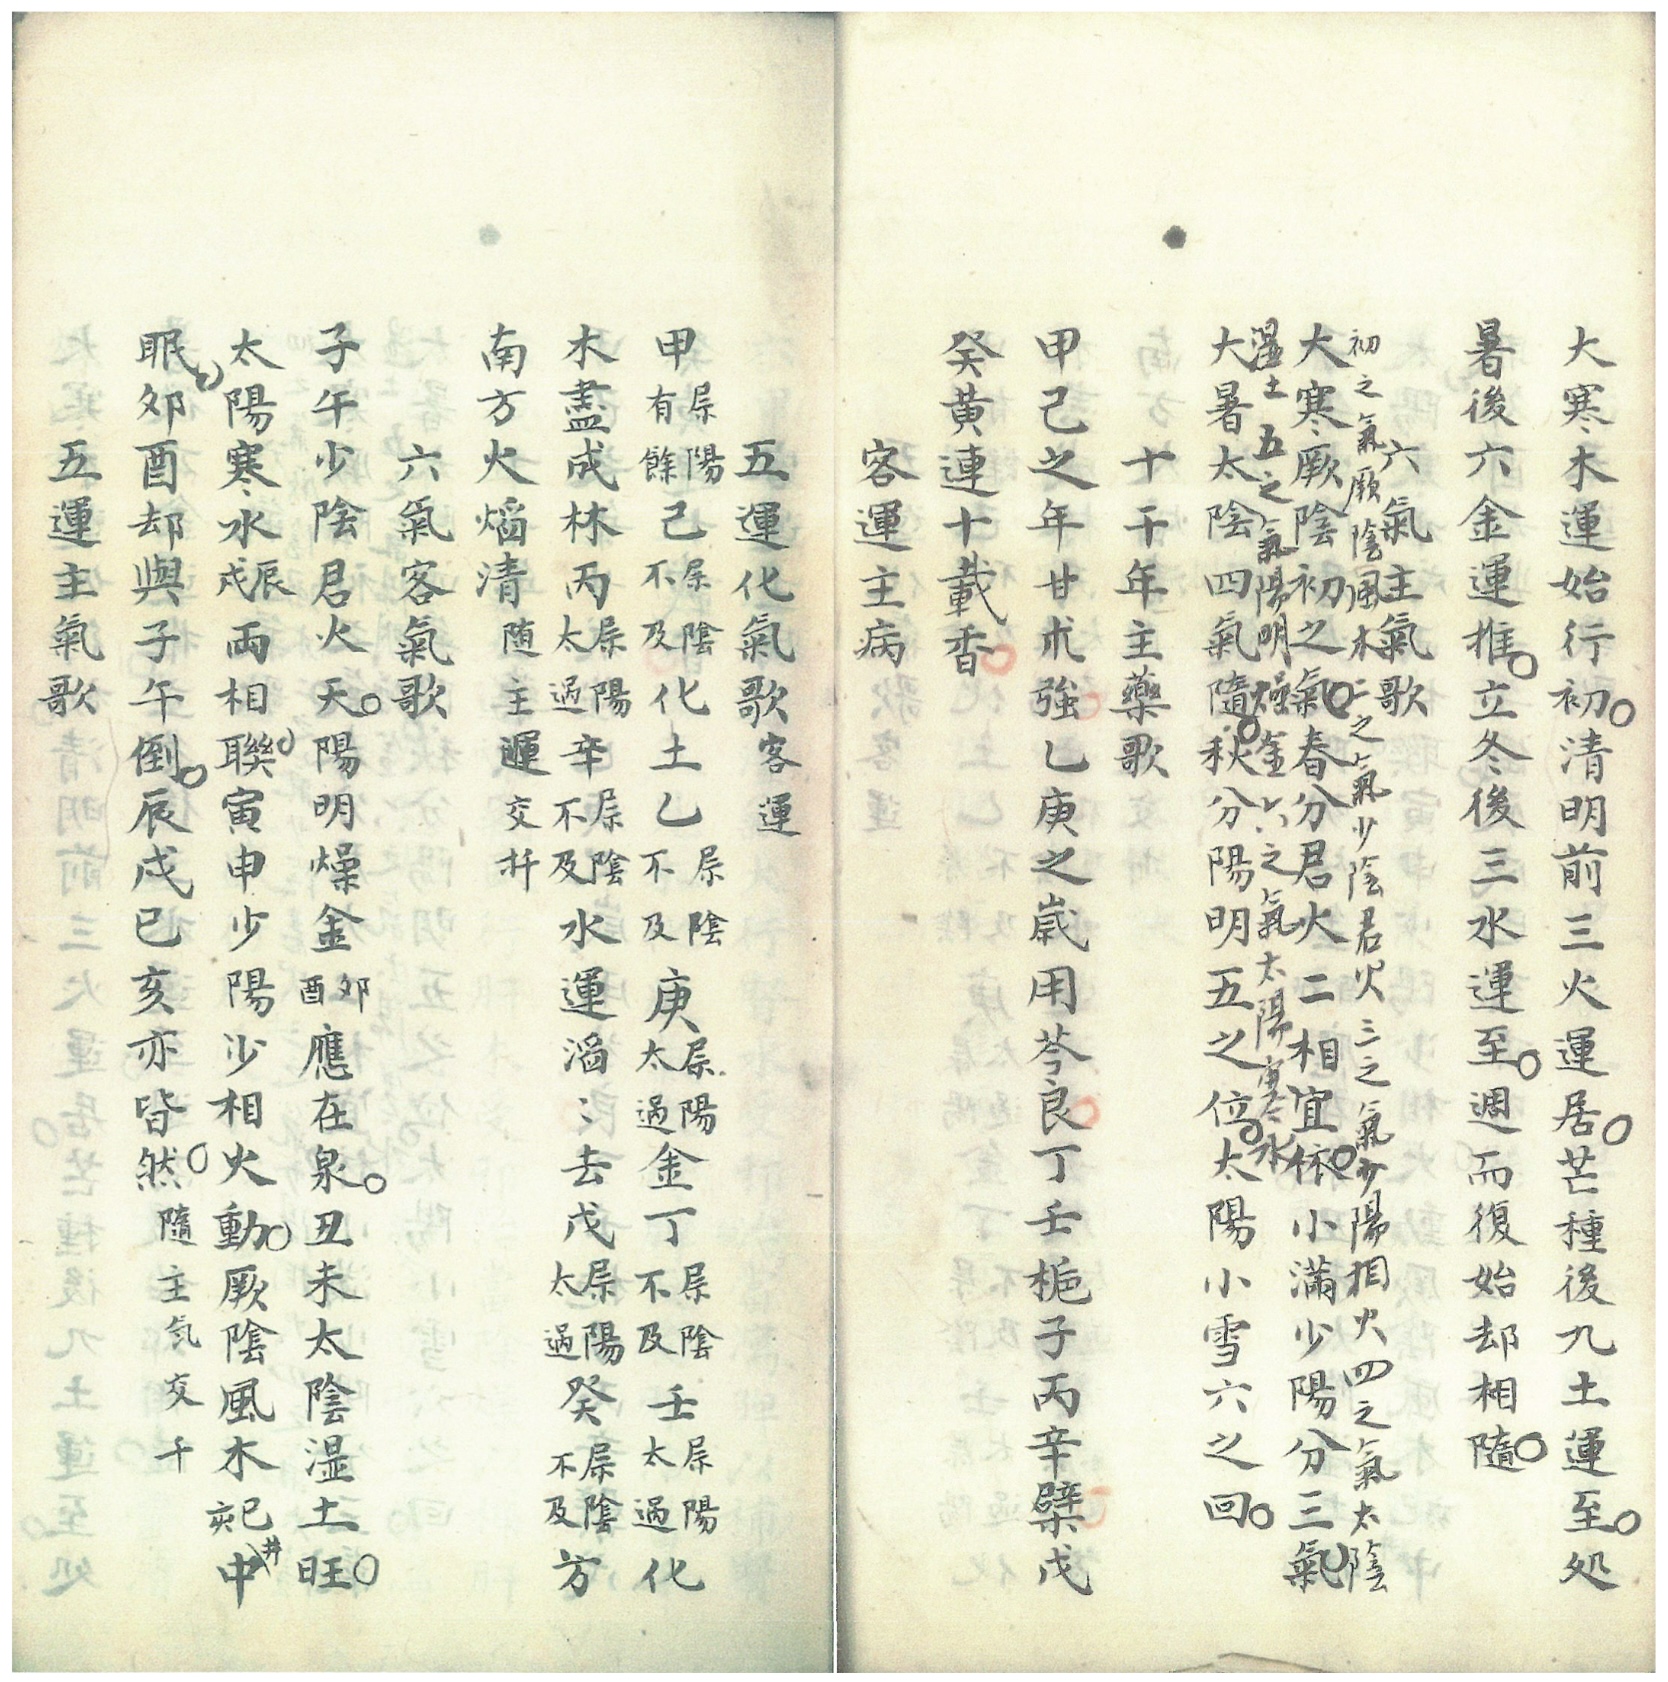 大寒木運始行初清明前三火運居芒種後九土運至処
暑後六金運推立冬後三水運至週而復始却相隨
六氣主氣歌
初之氣厥陰風木二之氣少陰君火三之氣少陽相火四之氣太陰
大寒厥陰初之氣春分君火二相宜依小滿少陽分三氣
濕土五之氣陽明燥金六之氣太陽寒水
大暑太陰四氣隨秋分陽明五之位太陽小雪六之回
十干年主藥歌
甲己之年甘朮強乙庚之歲用芩良丁壬梔子丙辛檗戊
癸黃連十載香
客運主病
五運化氣歌客運
甲屬陽有餘己屬陰不及化土乙屬陰不及庚屬陽太過金丁屬陰不及壬屬陽太過化
木盡成林丙屬陽太過辛屬陰不及水運滔〻去戊屬陽太過癸屬陰不及方
南方火熖清隨主運交扦
六氣客氣歌
子午少陰君火天陽明燥金卯酉應在泉丑未太陰湿土旺
太陽寒水辰戌雨相聯寅申少陽少相火動厥陰風木巳亥中
眠卯酉却與子午倒辰戌巳亥亦皆然隨主氣交千
五運主氣歌